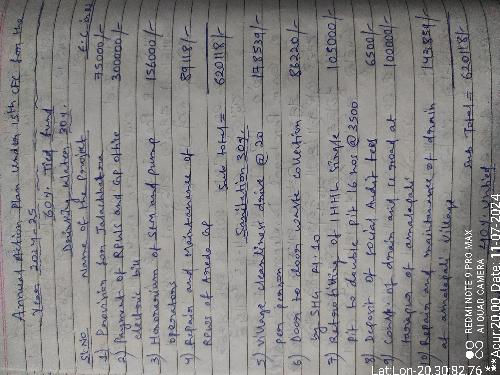 Annual Action Plan under 15th CFC for the
Year 2024-25
60% Tied fund
Drinking Water 30%
Sl.No Name of the Project Est. cost
1) Provision for Jalachhatra 75000/-
2) Payment of RPWS and GP office 300000/-
electric bill
3) Honorarium of SEM and pump 156000/-
operators
4) Repair and Maintainance of 89118/-
RPWS of GP
Sub total = 620118/-
Sanitation 30%
5) Village cleanliness drive @ 20 178539/-
per person
6) Door to door waste collection 86220/-
by SHG
7) Retrofitting of IHHL single 105000/-
pit to double pit 16 nos @ 3500
8) Deposit of Social Audit fees 6500/-
9) Const. of drain and at 100000/-
10) Repair and maintainance of drain 143859/-
at village
Sub Total = 620118/-
40% Untied
REDMI NOTE 9 PRO MAX
AI QUAD CAMERA
Lat Lon-20.30,82.76
**Acur:20.00 Date: 11-07-2024